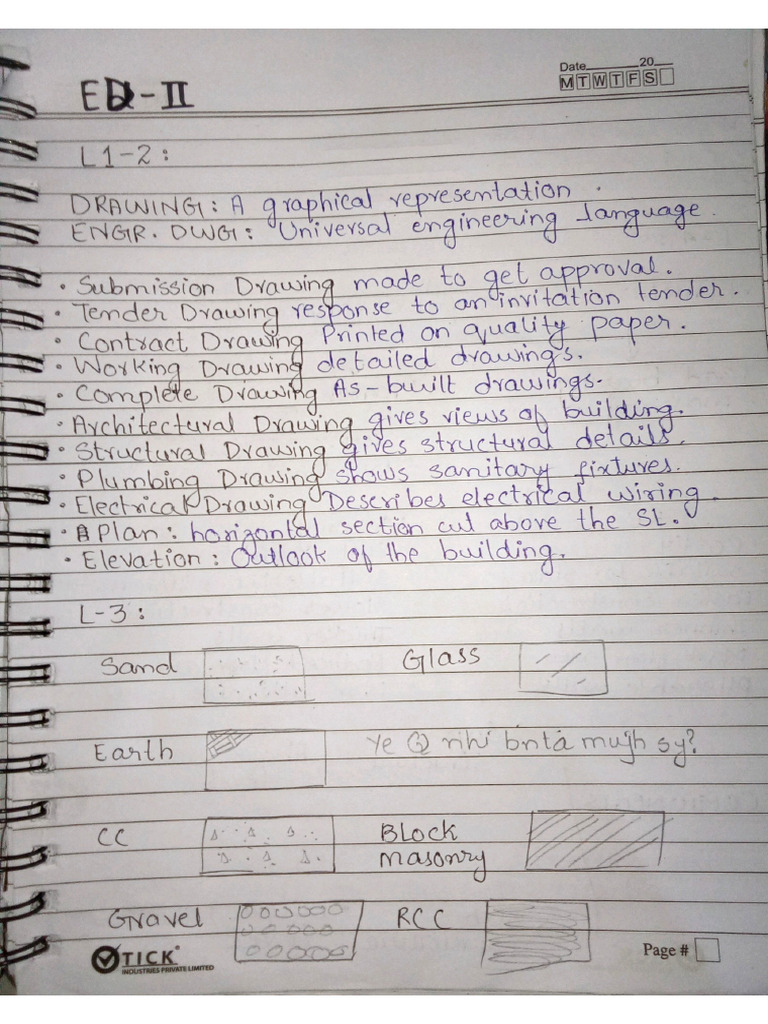 Date 20
M T W T F S
ED-II
L1-2:
DRAWING: A graphical representation.
ENGR. DWG: Universal engineering language.
• Submission Drawing made to get approval.
• Tender Drawing response to an invitation tender.
• Contract Drawing Printed on quality paper.
• Working Drawing detailed drawings.
• Complete Drawing As-built drawings.
• Architectural Drawing gives views of building.
• Structural Drawing gives structural details.
• Plumbing Drawing shows sanitary fixtures.
• Electrical Drawing Describes electrical wiring.
• Plan: horizontal section cut above the SL.
• Elevation: Outlook of the building.
L-3:
Sand Glass
Earth Ye nhi bnta mujh sy?
CC Block
masonry
Gravel RCC
TICK
INDUSTRIES PRIVATE LIMITED
Page #